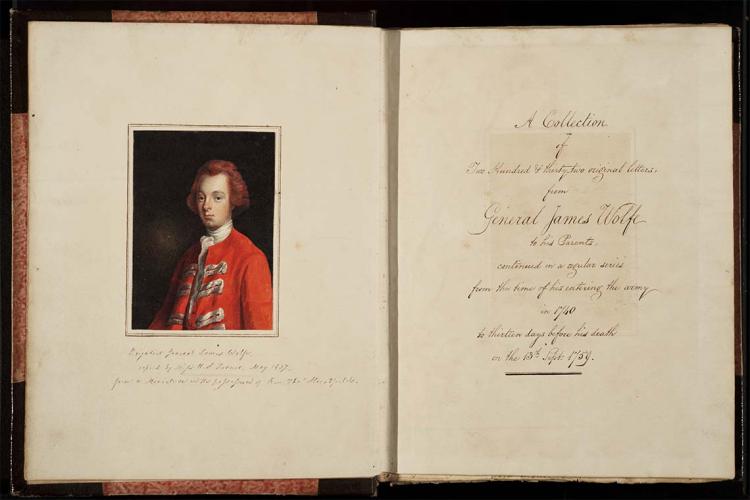 Brigadier General James Wolfe,
copied by Miss H. S. Turner, May 1837.
from a Miniature in the possession of
A Collection
of
Two Hundred & thirty two original letters,
from
General James Wolfe
to his Parents,
continued in a regular series
from the time of his entering the army
in 1740
to thirteen days before his death
on the 13th Sept. 1759.